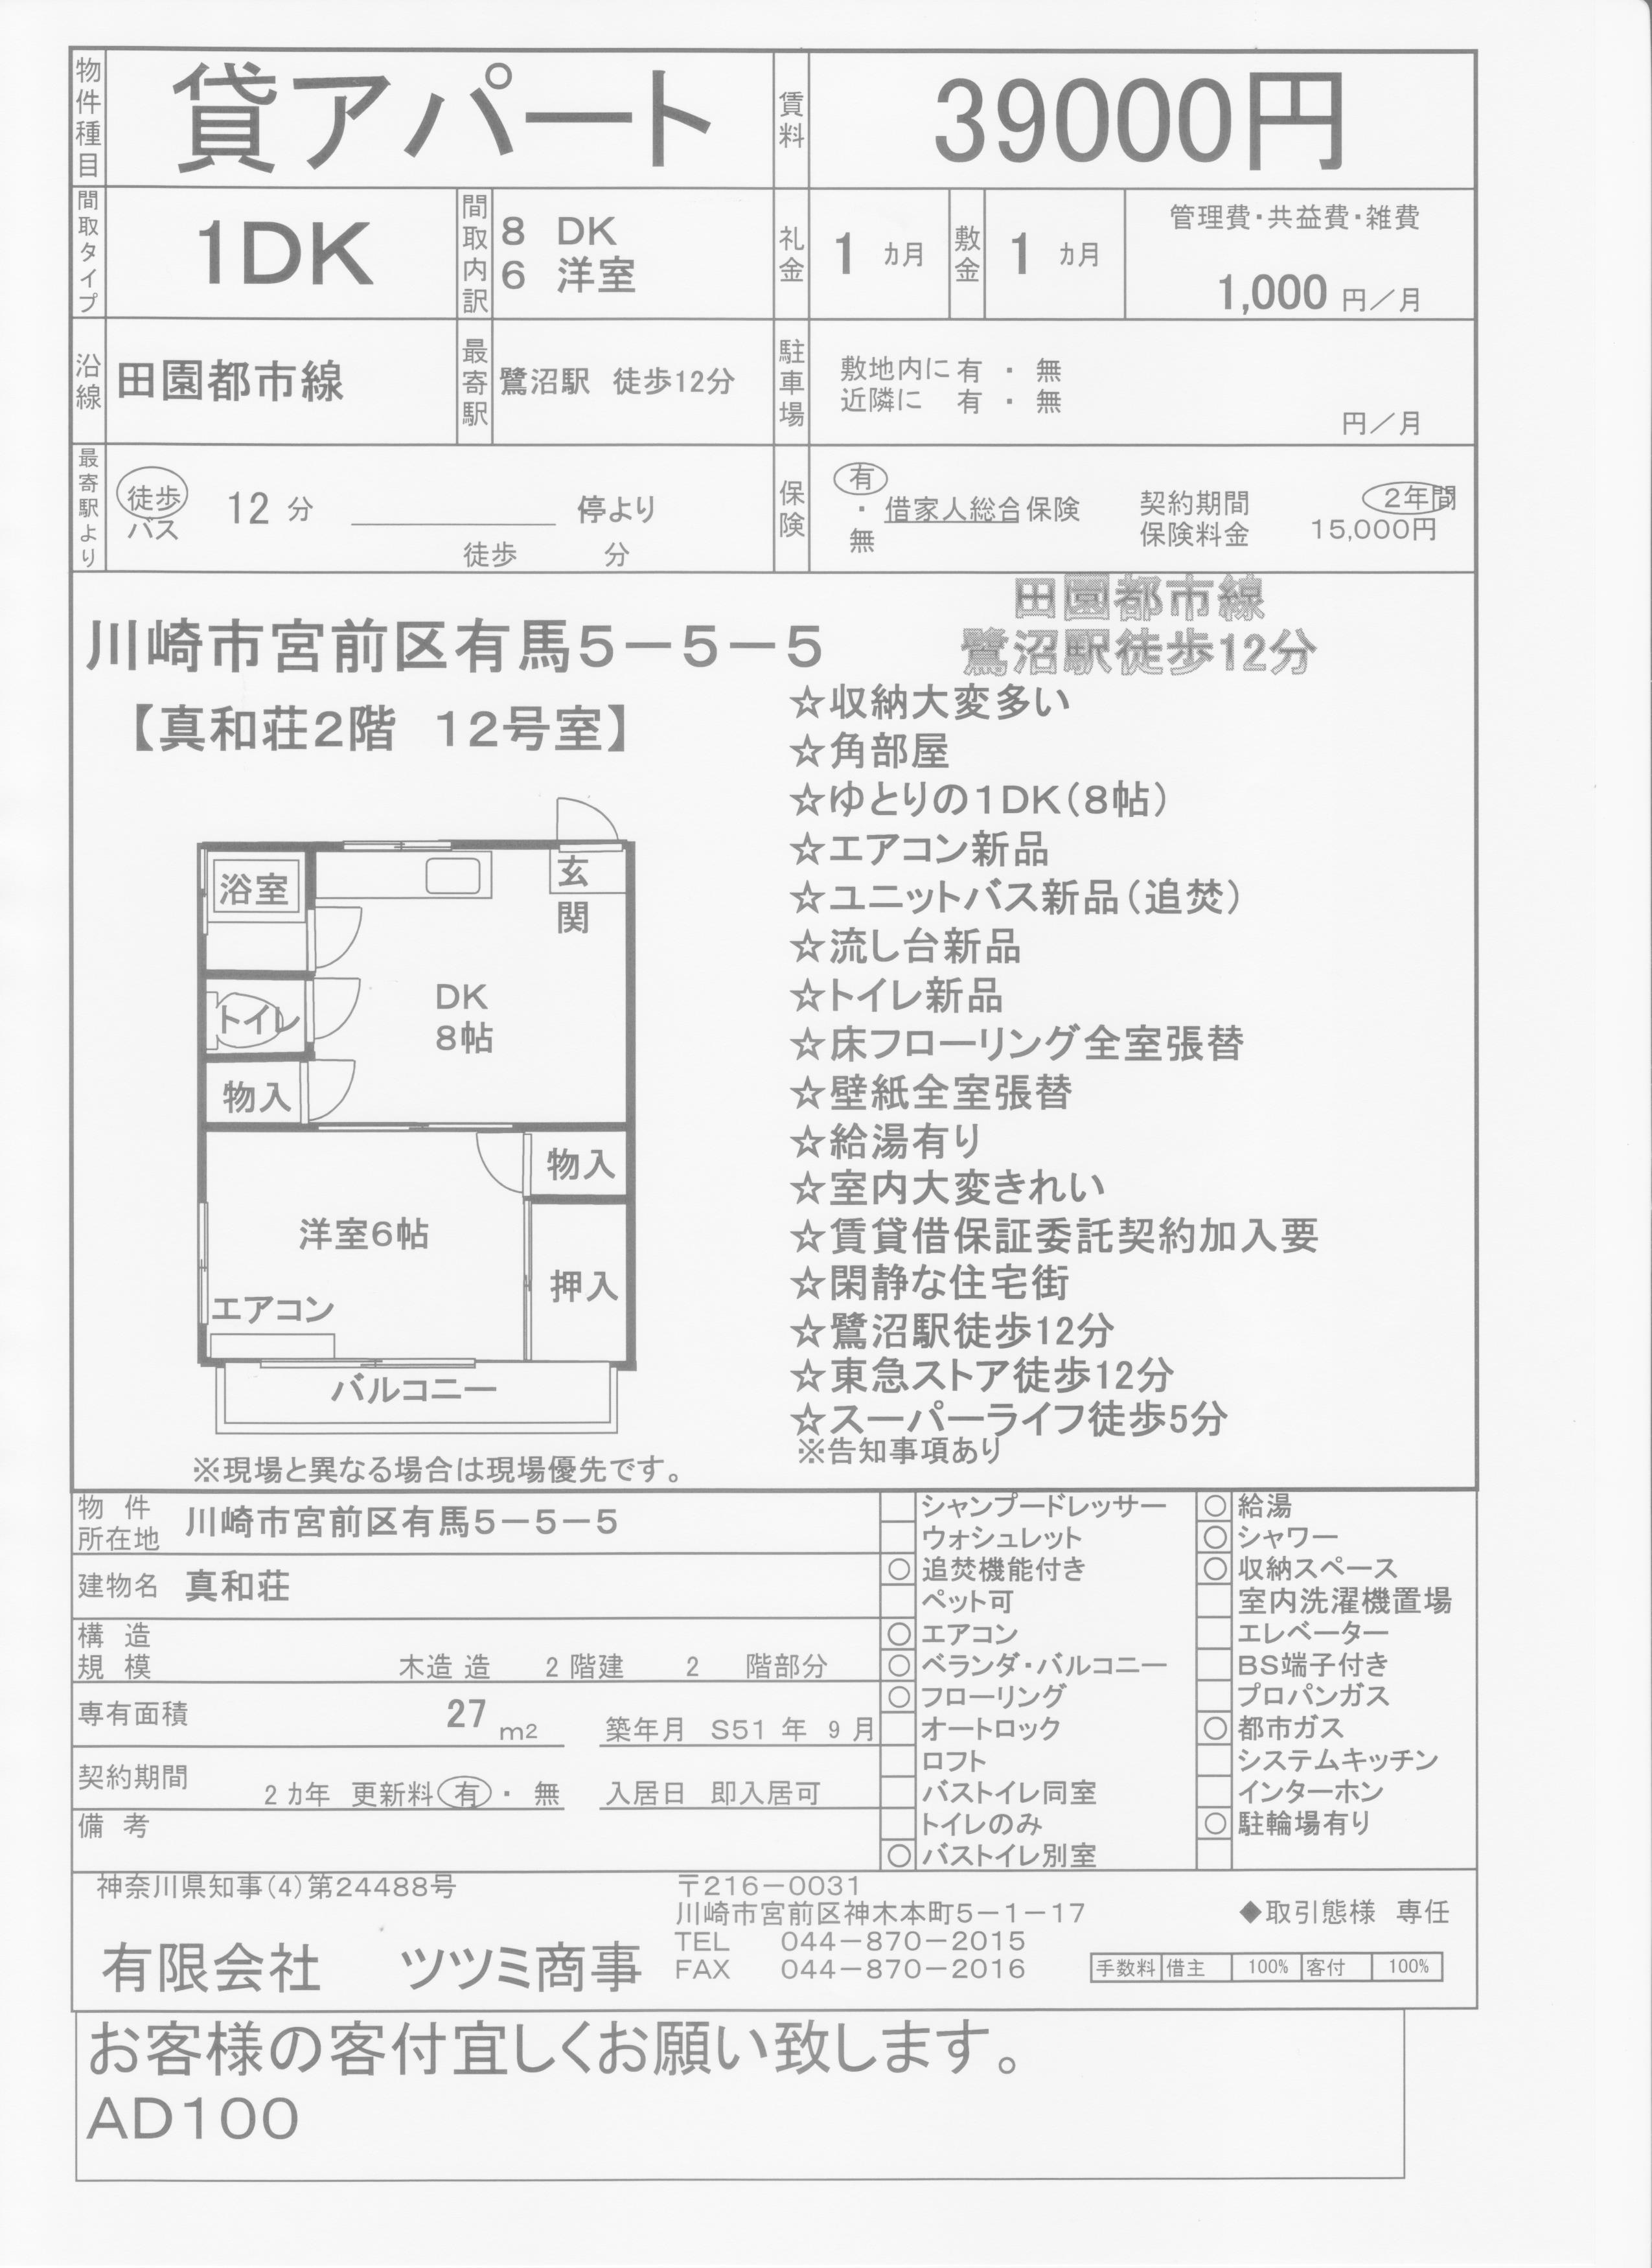 物件種目 貸アパート 賃料 39000円
間取タイプ 1DK 間取内訳 8 DK
6 洋室
礼金 1 カ月 敷金 1 カ月 管理費・共益費・雑費
1,000 円／月
沿線 田園都市線 最寄駅 鷺沼駅 徒歩12分 駐車場 敷地内に 有 ・ 無
近隣に 有 ・ 無
円／月
最寄駅より 徒歩 12 分 停より
バス
徒歩 分
保険 有・無 借家人総合保険 契約期間 2年間
保険料金 15,000円
川崎市宮前区有馬5－5－5
【真和荘2階 12号室】
田園都市線
鷺沼駅徒歩12分
☆収納大変多い
☆角部屋
☆ゆとりの1DK（8帖）
☆エアコン新品
☆ユニットバス新品（追焚）
☆流し台新品
☆トイレ新品
☆床フローリング全室張替
☆壁紙全室張替
☆給湯有り
☆室内大変きれい
☆賃貸借保証委託契約加入要
☆閑静な住宅街
☆鷺沼駅徒歩12分
☆東急ストア徒歩12分
☆スーパーライフ徒歩5分
※告知事項あり
浴室
玄関
DK
8帖
トイレ
物入
物入
洋室6帖
押入
エアコン
バルコニー
※現場と異なる場合は現場優先です。
物件所在地 川崎市宮前区有馬5－5－5
建物名 真和荘
構造規模 木造 造 2 階建 2 階部分
専有面積 27 m2 築年月 S51 年 9 月
契約期間 2 カ年 更新料 有 ・ 無 入居日 即入居可
備考
シャンプードレッサー
ウォシュレット
○ 追焚機能付き
ペット可
○ エアコン
○ ベランダ・バルコニー
○ フローリング
オートロック
ロフト
バストイレ同室
トイレのみ
○ バストイレ別室
○ 給湯
○ シャワー
○ 収納スペース
室内洗濯機置場
エレベーター
BS端子付き
プロパンガス
○ 都市ガス
システムキッチン
インターホン
○ 駐輪場有り
神奈川県知事(4)第24488号
有限会社 ツツミ商事
〒216－0031
川崎市宮前区神木本町5－1－17
TEL 044－870－2015
FAX 044－870－2016
◆取引態様 専任
手数料 借主 100% 客付 100%
お客様の客付宜しくお願い致します。
AD100